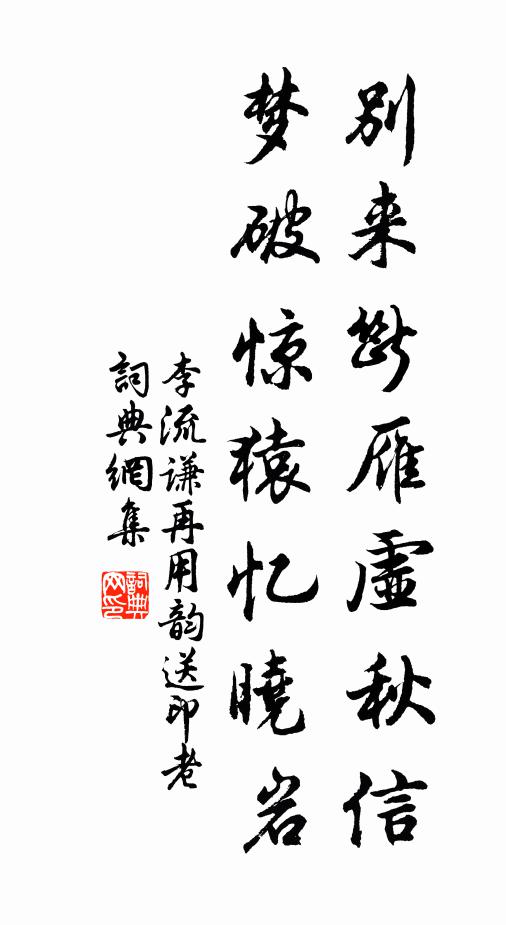 别来断雁虚秋信
梦破惊猿忆曉岩
李流谦再用韵送印老
詞典網集
詞典网印